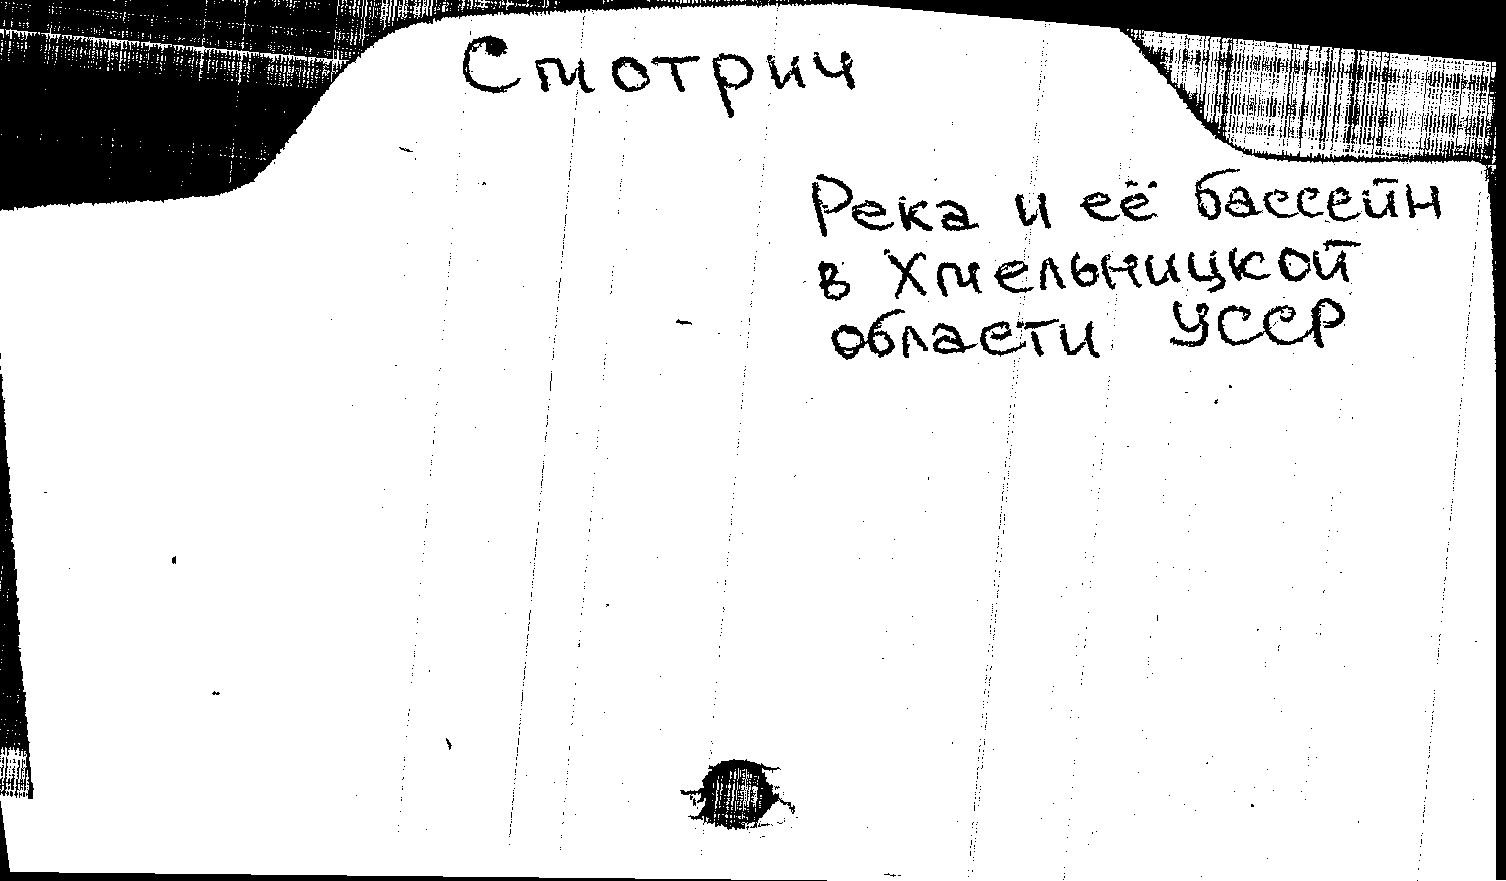 Смотрич
Река и её бассейн
в Хмельницкой
области УССР